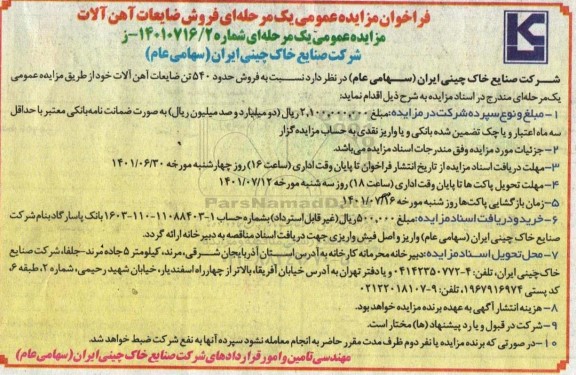 فراخوان مزایده عمومی یک مرحله‌ای فروش ضایعات آهن آلات
مزایده عمومی یک مرحله‌ای شماره ۱۴۰۱۰۷۱۶/۲-ز
شرکت صنایع خاک چینی ایران (سهامی عام)
شرکت صنایع خاک چینی ایران (سهامی عام) در نظر دارد نسبت به فروش حدود ۵۴۰ تن ضایعات آهن آلات خود از طریق مزایده عمومی
یک مرحله‌ای مندرج در اسناد مزایده به شرح ذیل اقدام نماید:
۱- مبلغ و نوع سپرده شرکت در مزایده: مبلغ ۲,۱۰۰,۰۰۰,۰۰۰ ریال (دو میلیارد و صد میلیون ریال) به صورت ضمانت نامه بانکی معتبر با حداقل
سه ماه اعتبار و یا چک تضمین شده بانکی و یا واریز نقدی به حساب مزایده گزار
۲- جزئیات مورد مزایده وفق مندرجات اسناد مزایده می‌باشد.
۳- مهلت دریافت اسناد مزایده از تاریخ انتشار فراخوان تا پایان وقت اداری (ساعت ۱۶) روز چهارشنبه مورخه ۱۴۰۱/۰۶/۳۰
۴- مهلت تحویل پاکت ها تا پایان وقت اداری (ساعت ۱۸) روز سه شنبه مورخه ۱۴۰۱/۰۷/۱۲
۵- زمان بازگشایی پاکت‌ها روز شنبه مورخه ۱۴۰۱/۰۷/۱۶
۶- خرید و دریافت اسناد مزایده: مبلغ ۵۰۰,۰۰۰ ریال (غیر قابل استرداد) بشماره حساب ۱-۱۱۰۸۸۴۰۳-۱۱۰-۱۶۰۳ بانک پاسارگاد بنام شرکت
صنایع خاک چینی ایران (سهامی عام) واریز و اصل فیش واریزی جهت دریافت اسناد مناقصه به دبیرخانه ارائه گردد.
۷- محل تحویل اسناد مزایده: دبیرخانه محرمانه کارخانه به آدرس استان آذربایجان شرقی، مرند، کیلومتر ۵ جاده مرند-جلفا، شرکت صنایع
خاک چینی ایران، تلفن: ۴-۰۴۱۴۲۳۵۰۷۷۲ و یا دفتر تهران به آدرس خیابان آفریقا، بالاتر از چهارراه اسفندیار، خیابان شهید رحیمی، شماره ۲، طبقه ۶،
کد پستی ۱۹۶۷۹۱۶۹۷۴، تلفن: ۹-۰۲۱۲۲۰۱۸۱۰۷
۸- هزینه انتشار آگهی به عهده برنده مزایده خواهد بود.
۹- شرکت در قبول و یا رد پیشنهاد (ها) مختار است.
۱۰- در صورتی که برنده مزایده یا نفر دوم ظرف مدت مقرر حاضر به انجام معامله نشود سپرده آنها به نفع شرکت ضبط خواهد شد.
مهندسی تامین و امور قراردادهای شرکت صنایع خاک چینی ایران (سهامی عام)